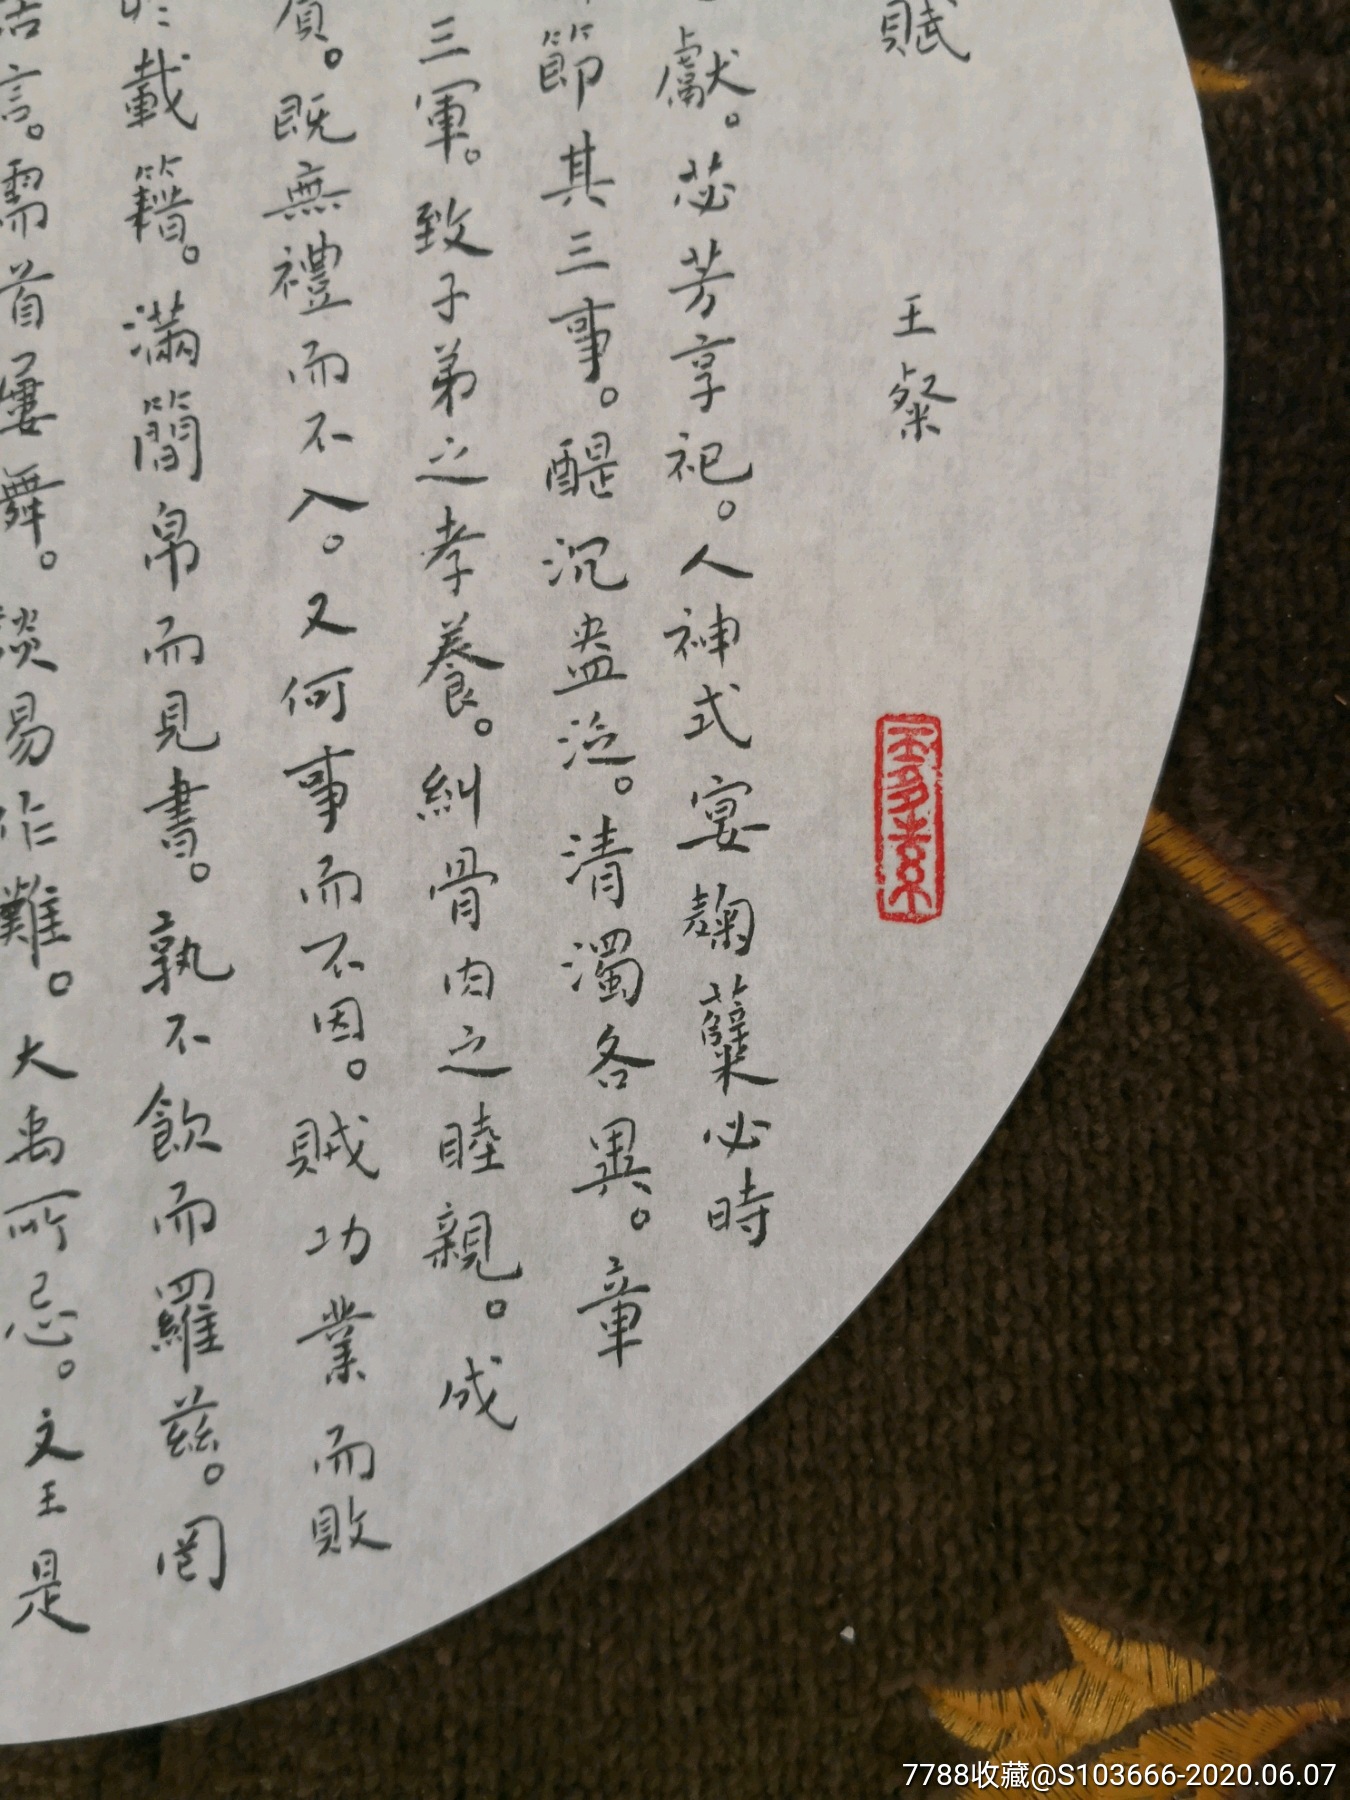 賦 王粲
獻。苾芳享祀。人神式宴。麹糵必時
節其三事。醍沉盎泛。清濁各異。章
三軍。致子弟之孝養。糾骨肉之睦親。成
既無禮而不入。又何事而不因。賊功業而敗
載籍。滿簡帛而見書。孰不飲而羅茲。罔
言。濡首屢舞。談易作難。大禹所忌。文王是
7788收藏@S103666-2020.06.07